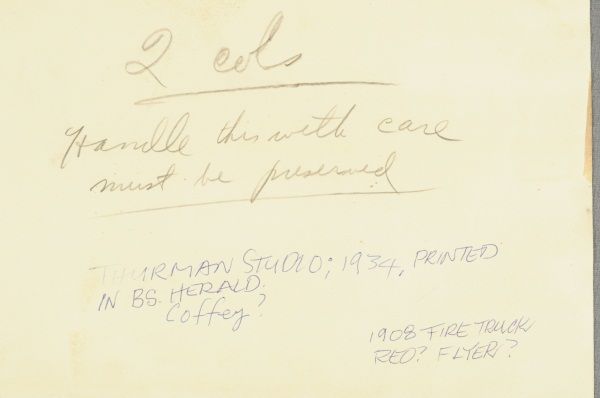 2 cols
Handle this with care
must be preserved
THURMAN STUDIO; 1934, PRINTED
IN BS. HERALD.
Coffey?
1908 FIRE TRUCK
REO? FLYER?